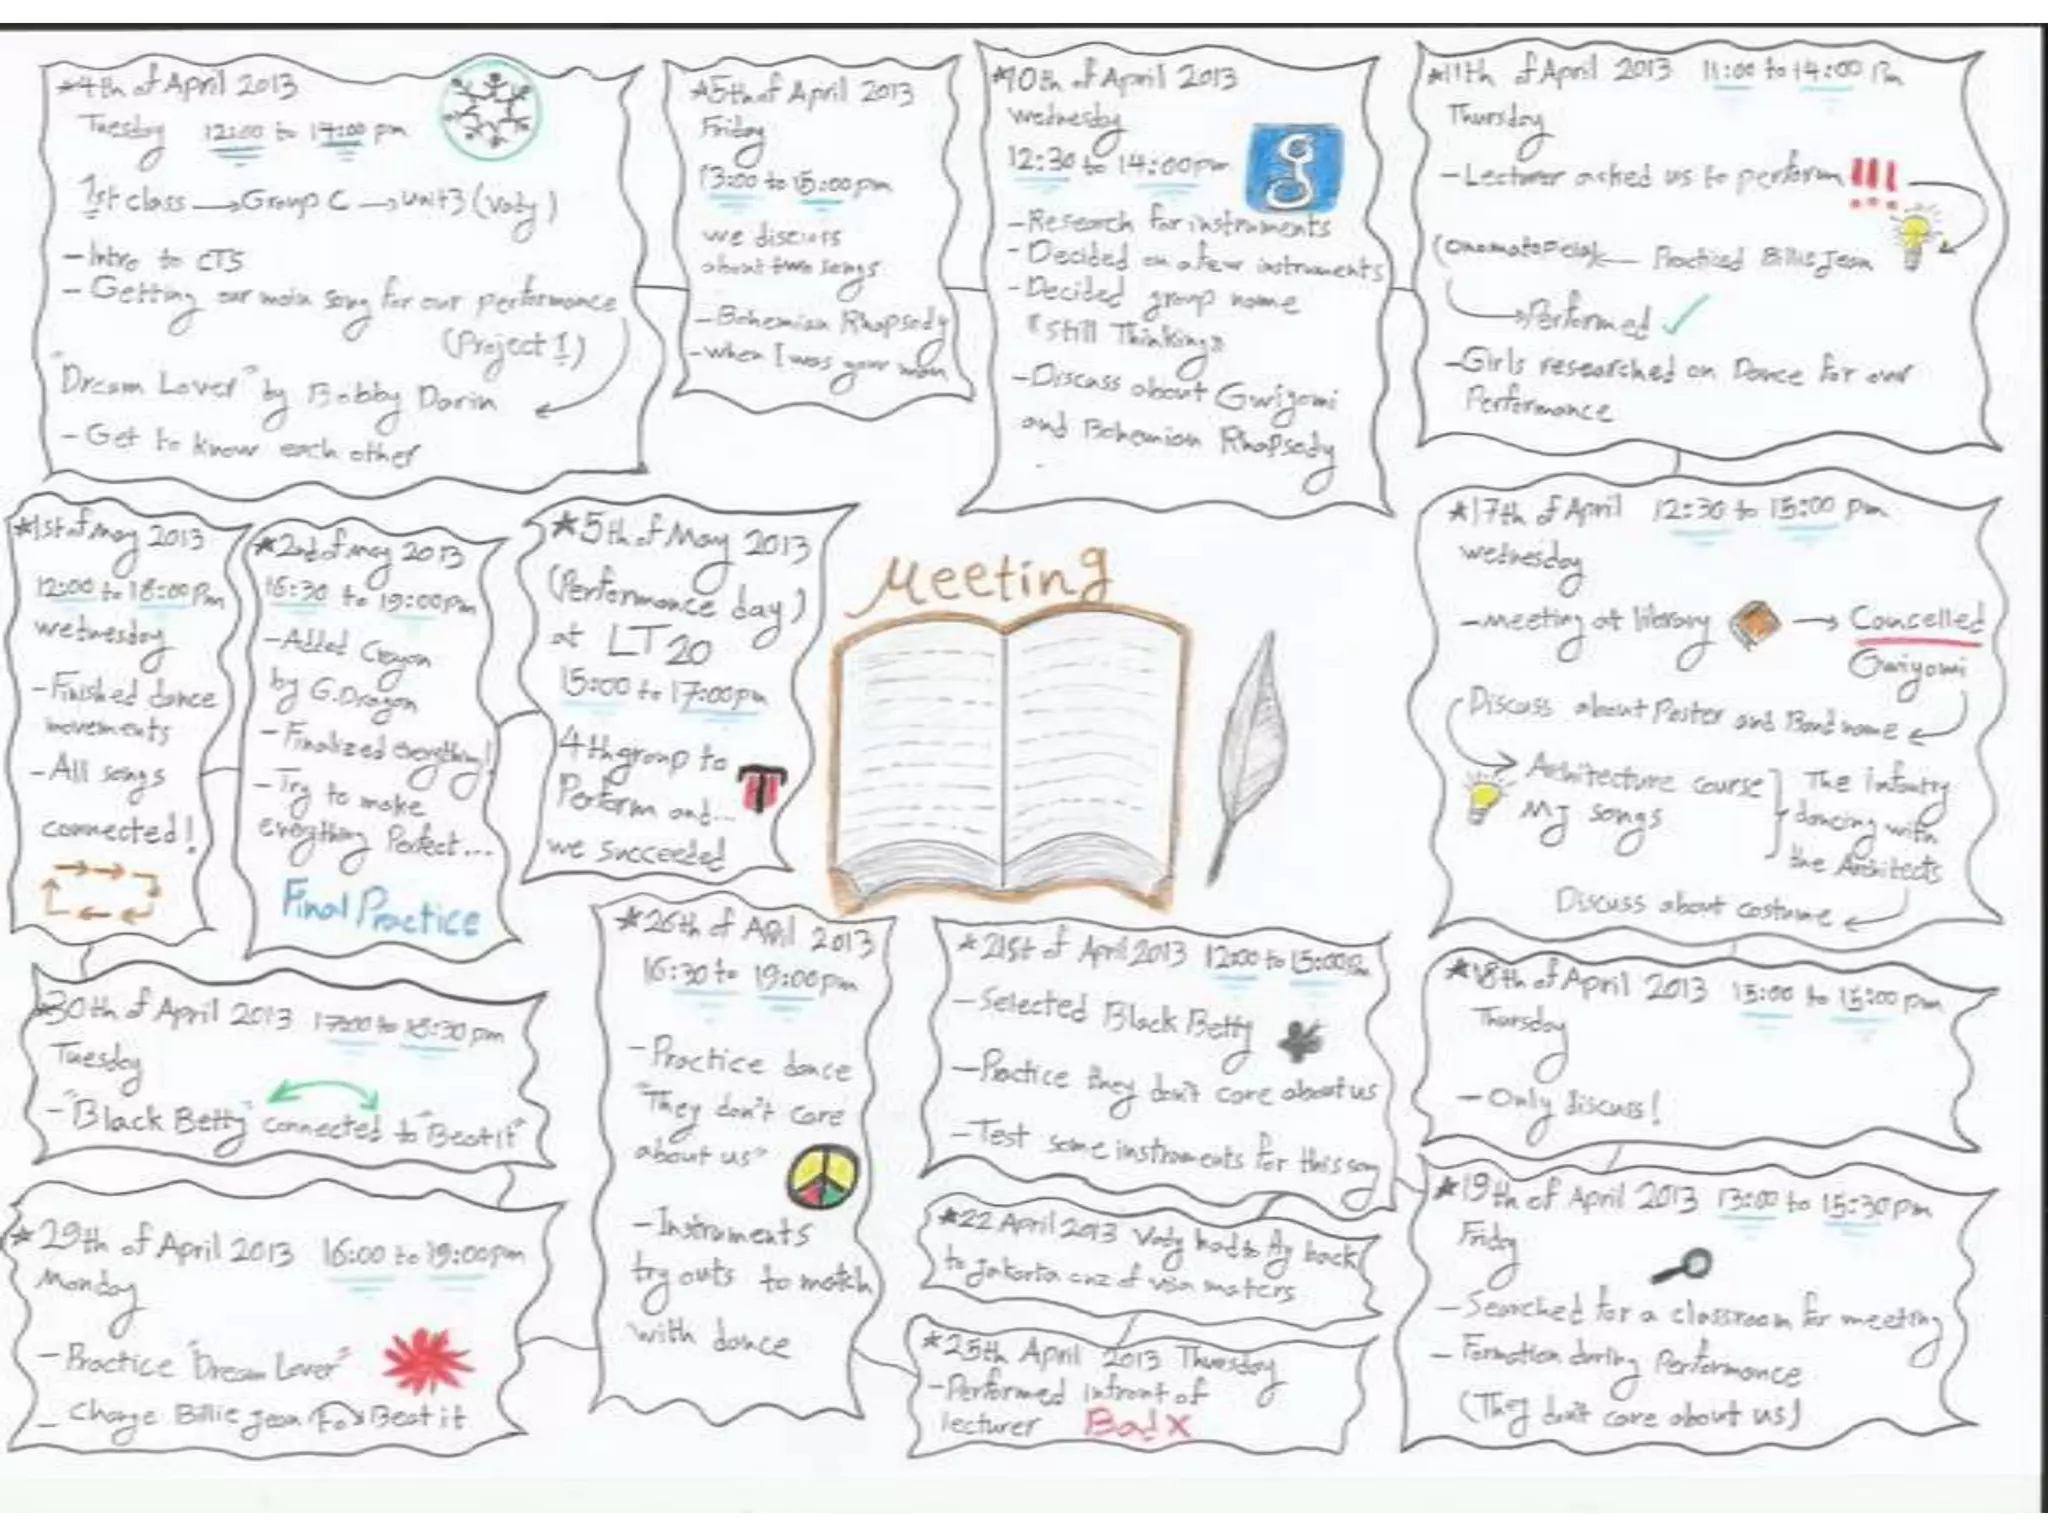 *4th of April 2013
Tuesday 12:00 to 14:00 pm
1st class → Group C → unit 3 (Vady)
- Intro to CTS
- Getting our main song for our performance
(Project 1)
"Dream Lover" by Bobby Darin
- Get to know each other
*5th of April 2013
Friday
13:00 to 15:00 pm
we discuss
about two songs
- Bohemian Rhapsody
- when I was your man
*10th of April 2013
wednesday
12:30 to 14:00 pm
g
- Research for instruments
- Decided on a few instruments
- Decided group name
"Still Thinking"
- Discuss about Gwiyomi
and Bohemian Rhapsody
*11th of April 2013 11:00 to 14:00 pm
Thursday
- Lecturer asked us to perform !!!
(Onomatopeia) ← Practiced Billie Jean
→ Performed ✓
- Girls researched on Dance for our
Performance
*17th of April 12:30 to 15:00 pm
wednesday
- meeting at library → Cancelled
Gwiyomi
Discuss about Poster and Band name
Architecture course
MJ songs
The infantry
dancing with
the Architects
Discuss about costume
*18th of April 2013 to 15:00 pm
Thursday
- Only discuss!
*19th of April 2013 13:00 to 15:30 pm
Friday
- Searched for a classroom for meeting
- Formation during Performance
(They don't care about us)
*21st of April 2013 12:00 to 15:00 Pm
- Selected Black Betty
- Practice they don't care about us
- Test some instruments for this song
*22 April 2013 Vady had to fly back
to Jakarta cuz of visa maters
*25th April 2013 Thursday
- Performed infront of
lecturer Bad X
*26th of April 2013
16:30 to 19:00 pm
- Practice dance
"They don't care
about us"
- Instruments
try outs to match
with dance
*29th of April 2013 16:00 to 19:00 pm
Monday
- Practice "Dream Lover"
- Change Billie jean For Beat it
*30th of April 2013 17:00 to 18:30 pm
Tuesday
- "Black Betty" connected to "Beat it"
*1st of may 2013
12:00 to 18:00 Pm
wednesday
- Finished dance
movements
- All songs
connected!
*2nd of may 2013
16:30 to 19:00 pm
- Added Crayon
by G.Dragon
- Finalized everything!
- Try to make
everything Perfect...
Final Practice
*5th of May 2013
(Performance day)
at LT 20
15:00 to 17:00 pm
4th group to
Perform and...
we succeeded
T
Meeting